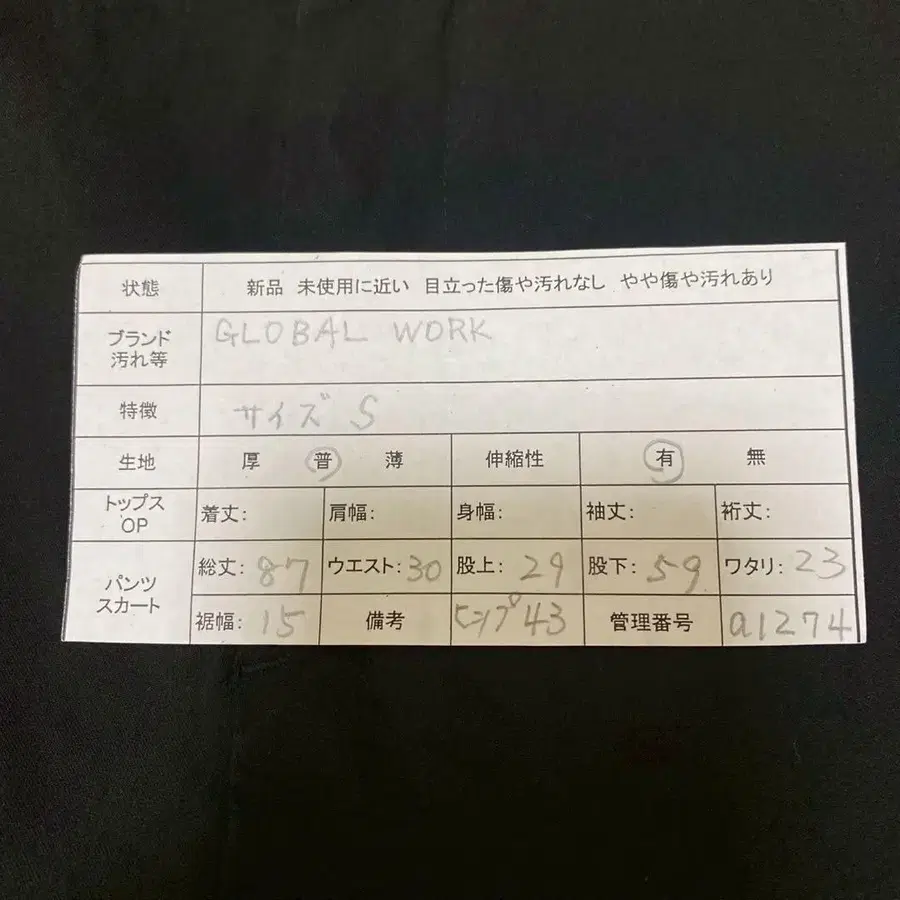 状態 新品 未使用に近い 目立った傷や汚れなし やや傷や汚れあり
ブランド 汚れ等 GLOBAL WORK
特徴 サイズ S
生地 厚 普 薄 伸縮性 有 無
トップス OP 着丈: 肩幅: 身幅: 袖丈: 裄丈:
パンツ スカート 総丈: 87 ウエスト: 30 股上: 29 股下: 59 ワタリ: 23
裾幅: 15 備考 ヒップ 43 管理番号 a1274